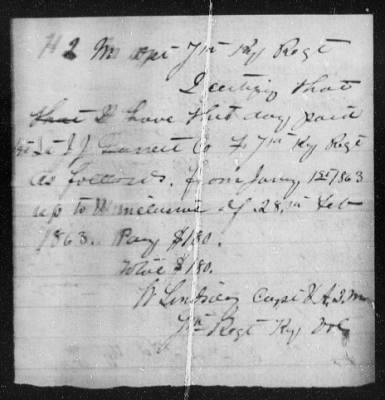 7th Ky Regt
I certify that
that I have this day paid
1st Lt J J Co F 7th Ky Regt
as follows. from Jany 1st 1863
up to inclusive of 28th Feb
1863. Pay $180.
$180.
W Lindsey Capt & A. Q. M
7th Regt Ky Vol